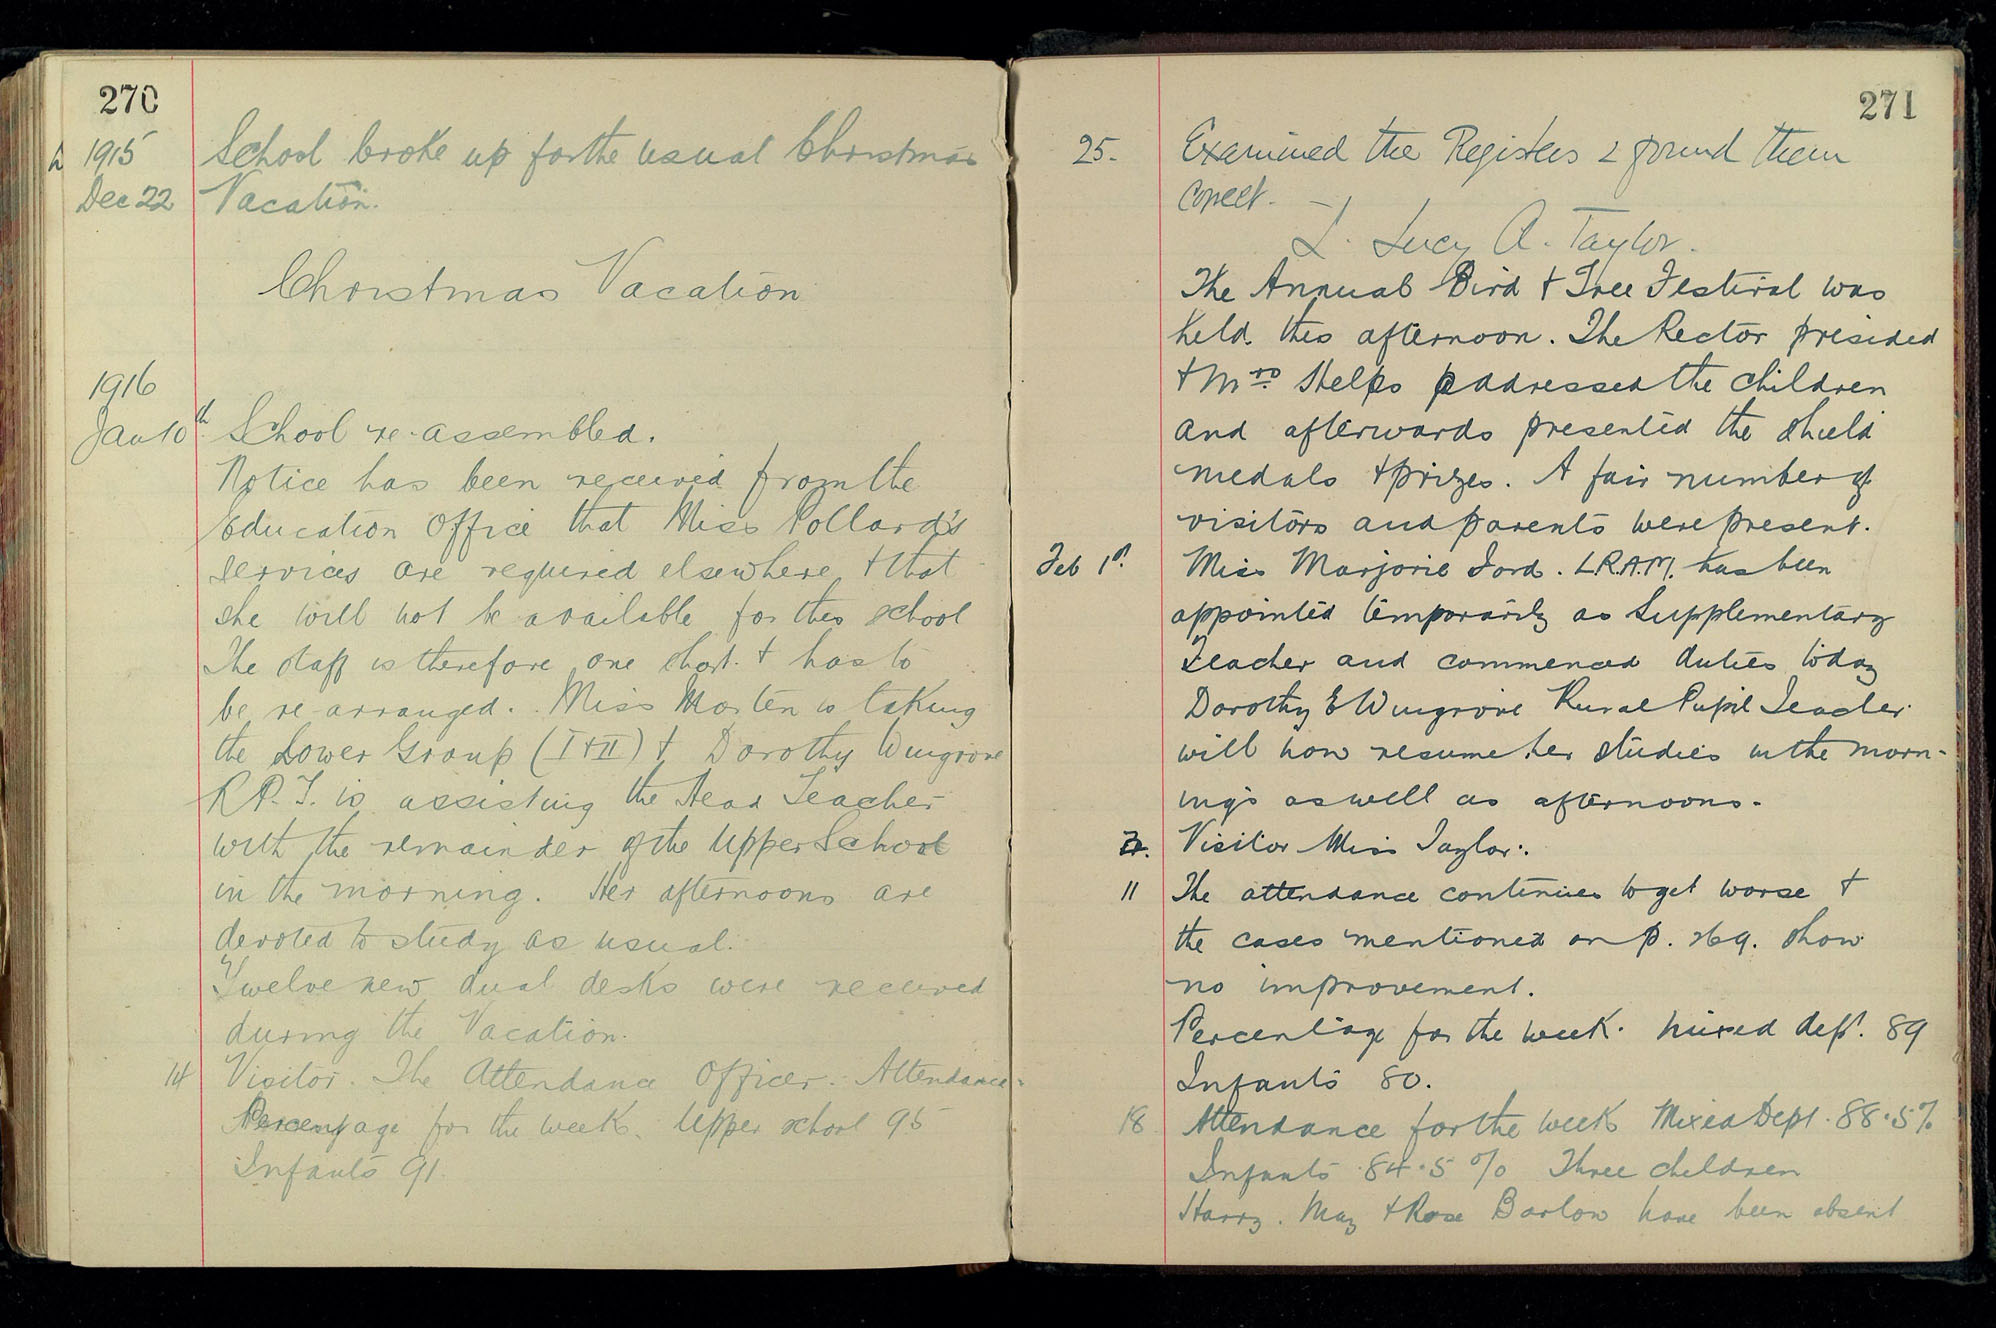 270
1915
Dec 22
School broke up for the usual Christmas
Vacation.
Christmas Vacation
1916
Jan 10th School re-assembled.
Notice has been received from the
Education Office that Miss Pollard's
services are required elsewhere & that
she will not be available for this school
The staff is therefore one short & has to
be re-arranged. Miss Morten is taking
the Lower Group (I & II) & Dorothy Wingrove
R.P.T. is assisting the Head Teacher
with the remainder of the Upper School
in the morning. Her afternoons are
devoted to study as usual.
Twelve new dual desks were received
during the Vacation.
14 Visitor. The Attendance Officer. Attendance
Percentage for the week. Upper school 95
Infants 91.
271
25. Examined the Registers & found them
correct.
Lucy A. Taylor.
The Annual Bird & Tree Festival was
held this afternoon. The Rector presided
& Mrs Phelps addressed the children
and afterwards presented the shield
medals & prizes. A fair number of
visitors and parents were present.
Feb 1st. Miss Marjorie Ford. L.R.A.M. has been
appointed temporarily as Supplementary
Teacher and commenced duties today
Dorothy E Wingrove Rural Pupil Teacher
will now resume her studies in the morn-
ings as well as afternoons.
Visitor Miss Taylor.
11 The attendance continues to get worse &
the cases mentioned on p. 269. show
no improvement.
Percentage for the week. Mixed dept. 89
Infants 80.
18 Attendance for the week Mixed Dept. 88.5%
Infants 84.5% Three children
Harry. May & Rose Barlow have been absent